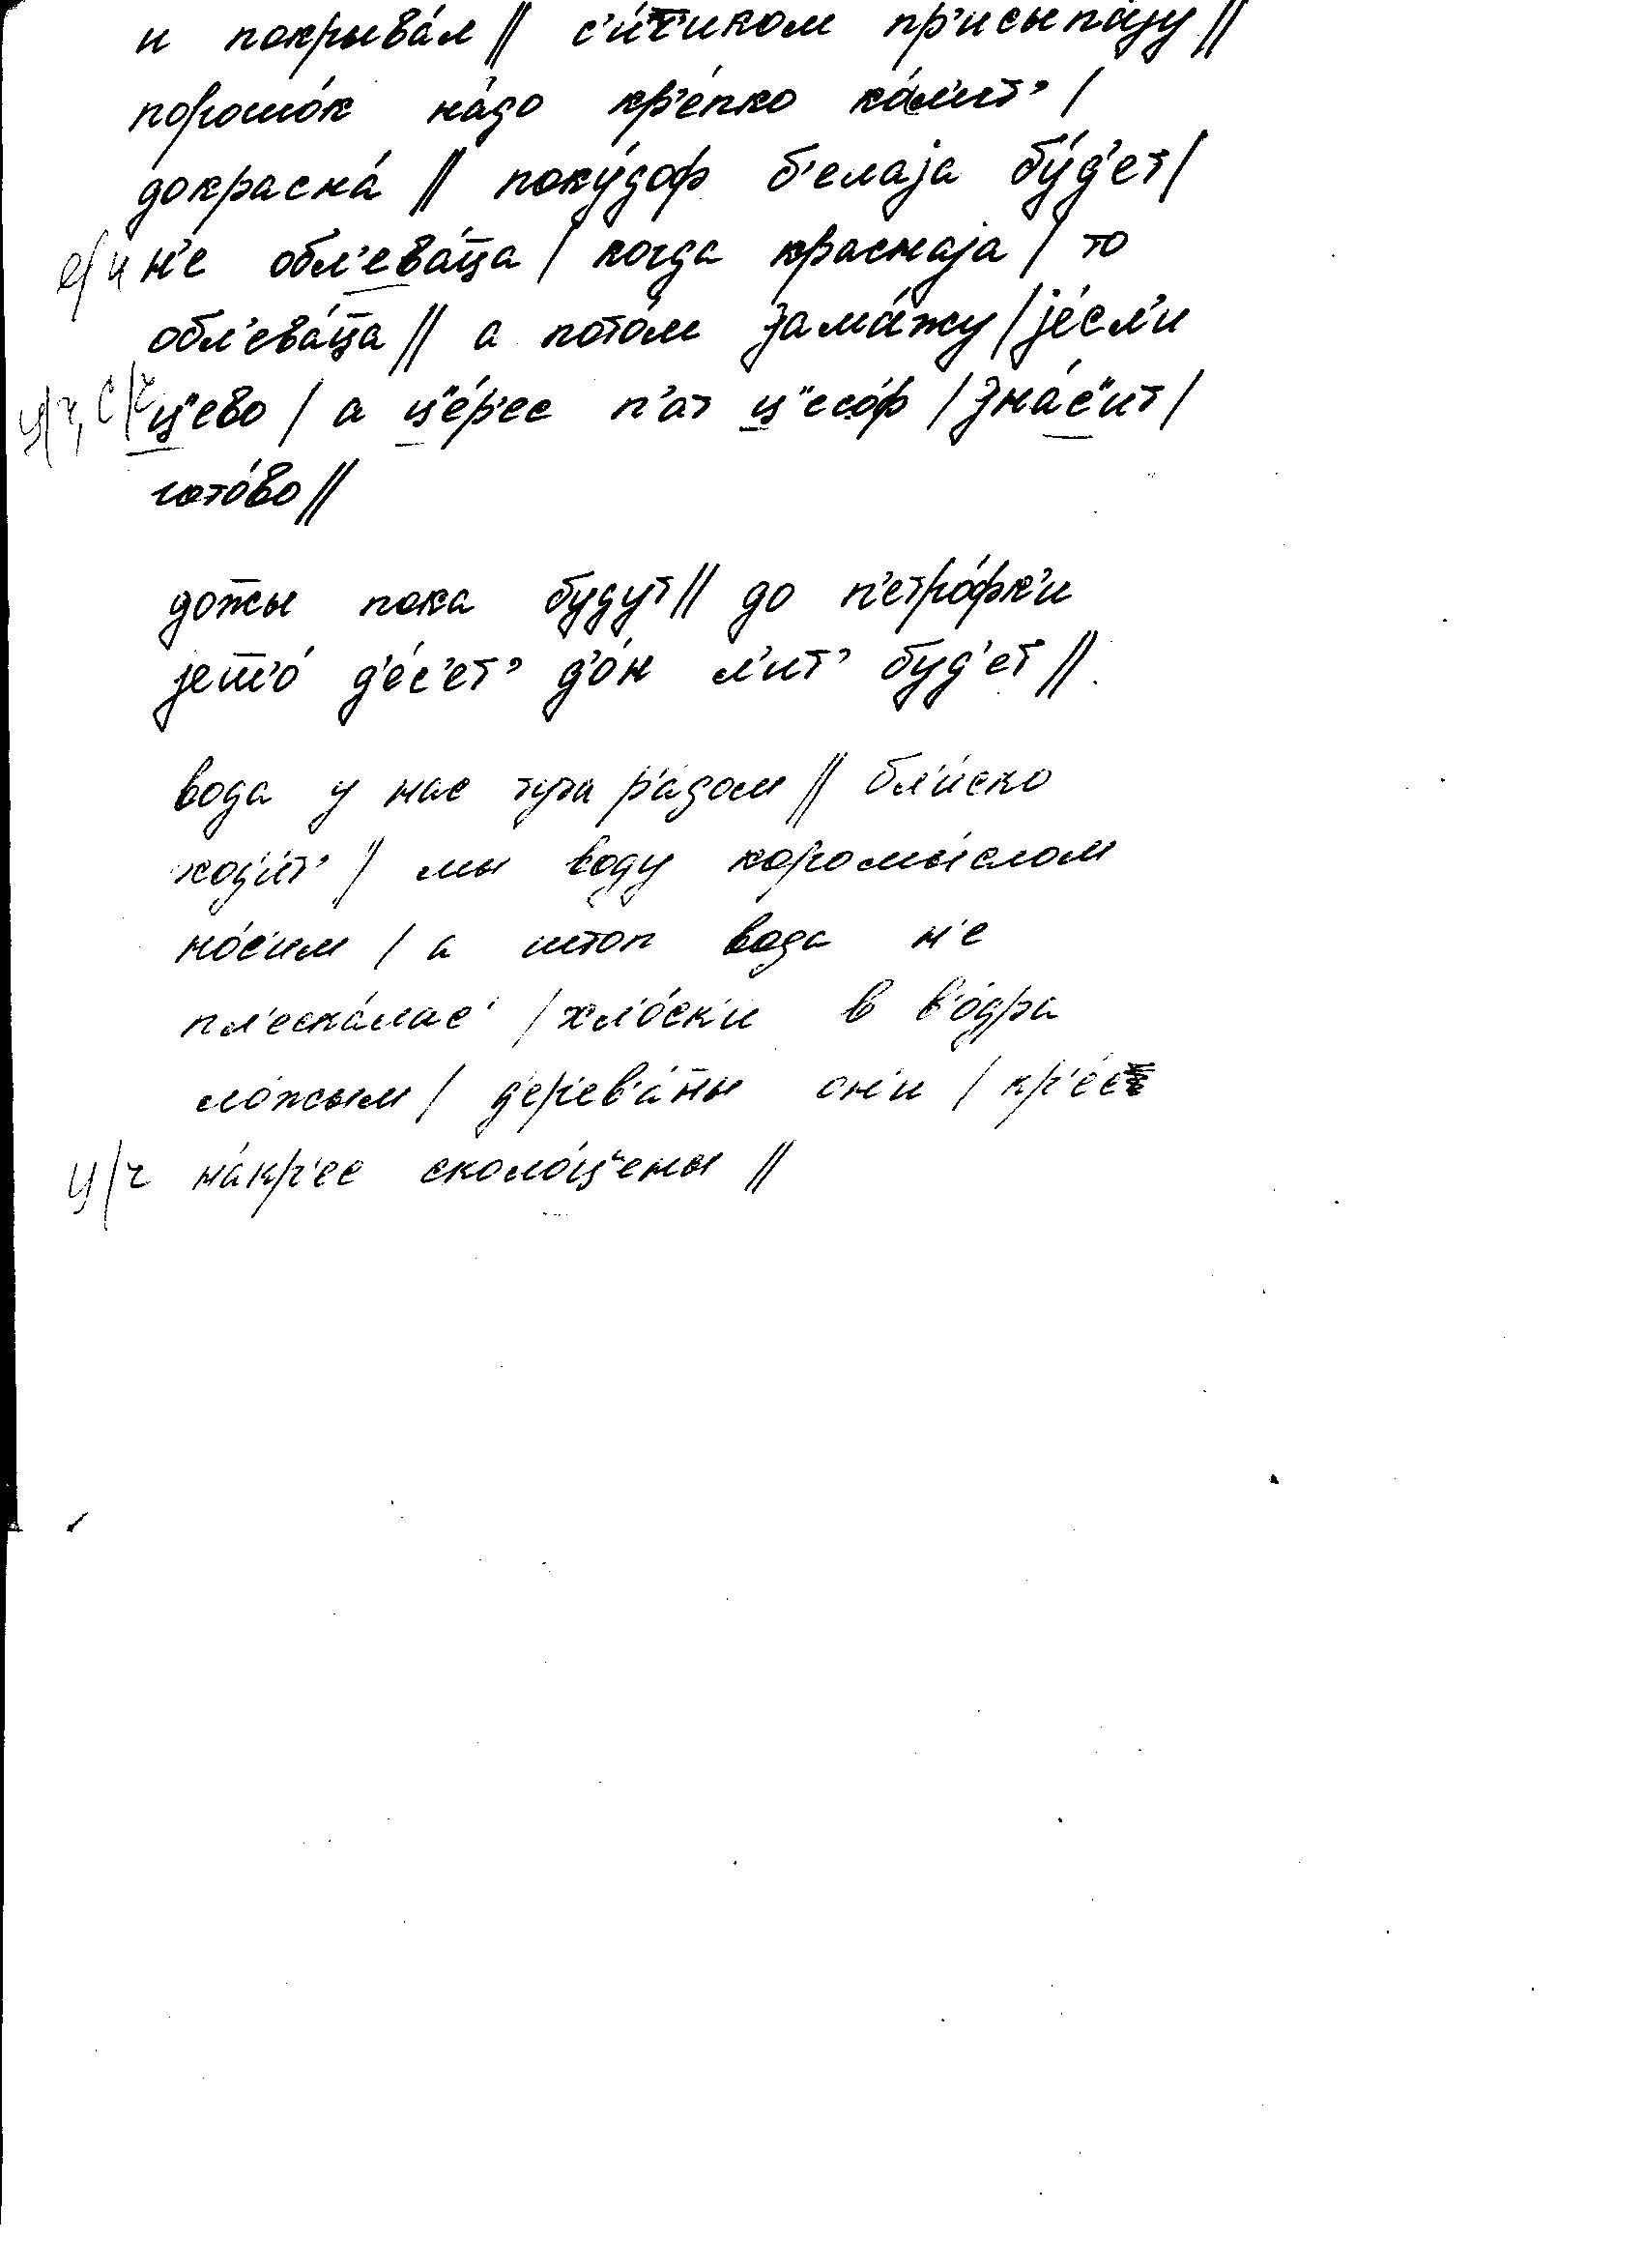 и покрыва́л // с'и́т̄'иком пр'исыпа́jу //
порошо́к на́до кр'е́пко ка́л'ит' /
докрасна́ // поку́доф б'елаjа бу́д'ет /
е/и н'е обл'ева́ц̄а / когда краснаjа / то
обл'ева́ц̄а // а пото́м зама́жу / jе́сл'и
ц/ч, с/ч ц"ево / а ц"е́р'ес п'ат ц"есо́ф / зна́с"ит /
гото́во //
дож̄ы пока будут // до п'етро́фк'и
jеш̄'о́ д'е́с'ет' д'о́н л'ит' буд'ет //
вода у нас тута р'а́дом // бл'и́ско
ход'и́т' / мы воду коромы́слом
но́с'им / а штоп вода н'е
пл'еска́лас' / хл'о́ск'и в в'о́дра
ло́жым / д'ер'ев'а́н̄ы он'и / кр'е́с
ц/ч на́кр'ес сколо́ц"ены //